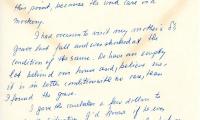 this point, because the word care is a
mockery.
I had occasion to visit my mother's
grave last fall and was shocked at the
condition of the same. We have an empty
lot behind our house and, believe me
it is in better condition with no care, than
I found the grave.
I gave the caretaker a few dollars to